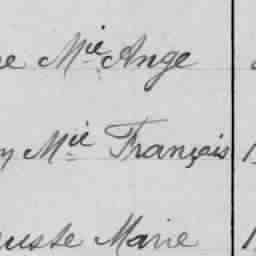 e Mie Ange
Mie François
uste Marie